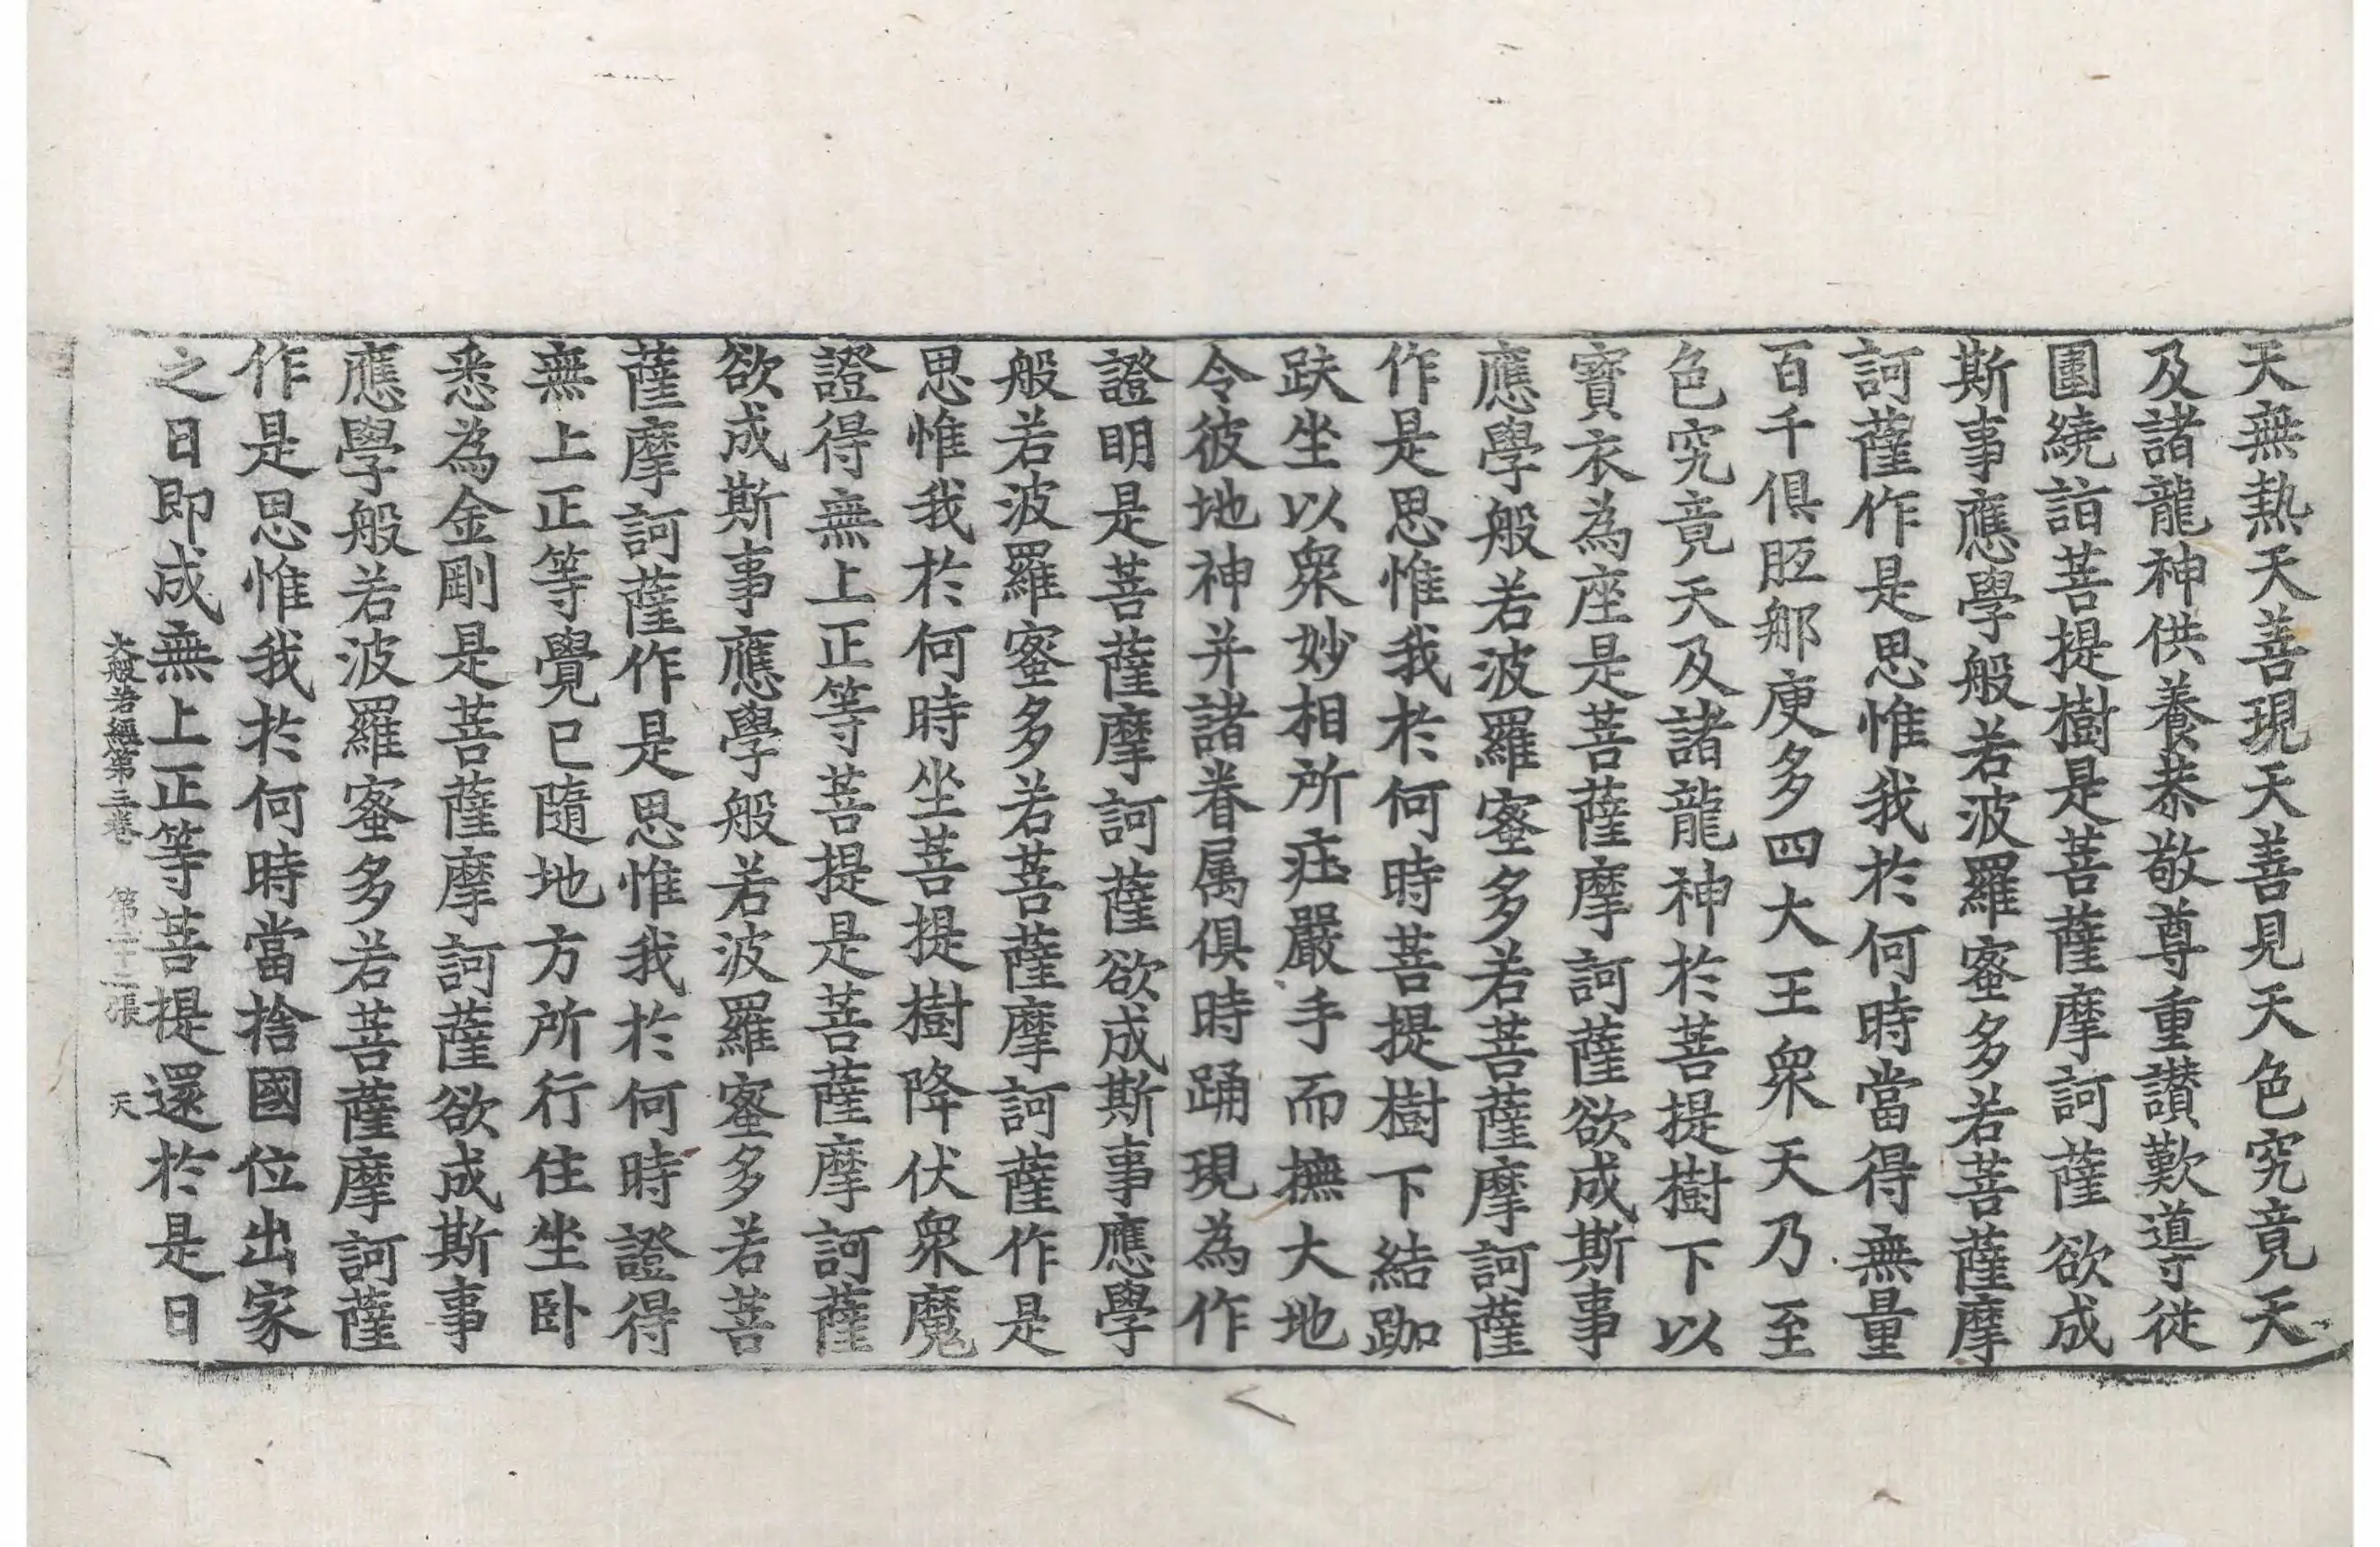 天無熱天善現天善見天色究竟天
及諸龍神供養恭敬尊重讃歎導從
圍繞詣菩提樹是菩薩摩訶薩欲成
斯事應學般若波羅蜜多若菩薩摩
訶薩作是思惟我於何時當得無量
百千俱胝那庾多四大王衆天乃至
色究竟天及諸龍神於菩提樹下以
寶衣為座是菩薩摩訶薩欲成斯事
應學般若波羅蜜多若菩薩摩訶薩
作是思惟我於何時菩提樹下結跏
趺坐以衆妙相所莊嚴手而撫大地
令彼地神并諸眷属俱時踊現為作
證明是菩薩摩訶薩欲成斯事應學
般若波羅蜜多若菩薩摩訶薩作是
思惟我於何時坐菩提樹降伏衆魔
證得無上正等菩提是菩薩摩訶薩
欲成斯事應學般若波羅蜜多若菩
薩摩訶薩作是思惟我於何時證得
無上正等覺已隨地方所行住坐卧
悉為金剛是菩薩摩訶薩欲成斯事
應學般若波羅蜜多若菩薩摩訶薩
作是思惟我於何時當捨國位出家
之日即成無上正等菩提還於是日
大般若經第三卷 第二十二張 天